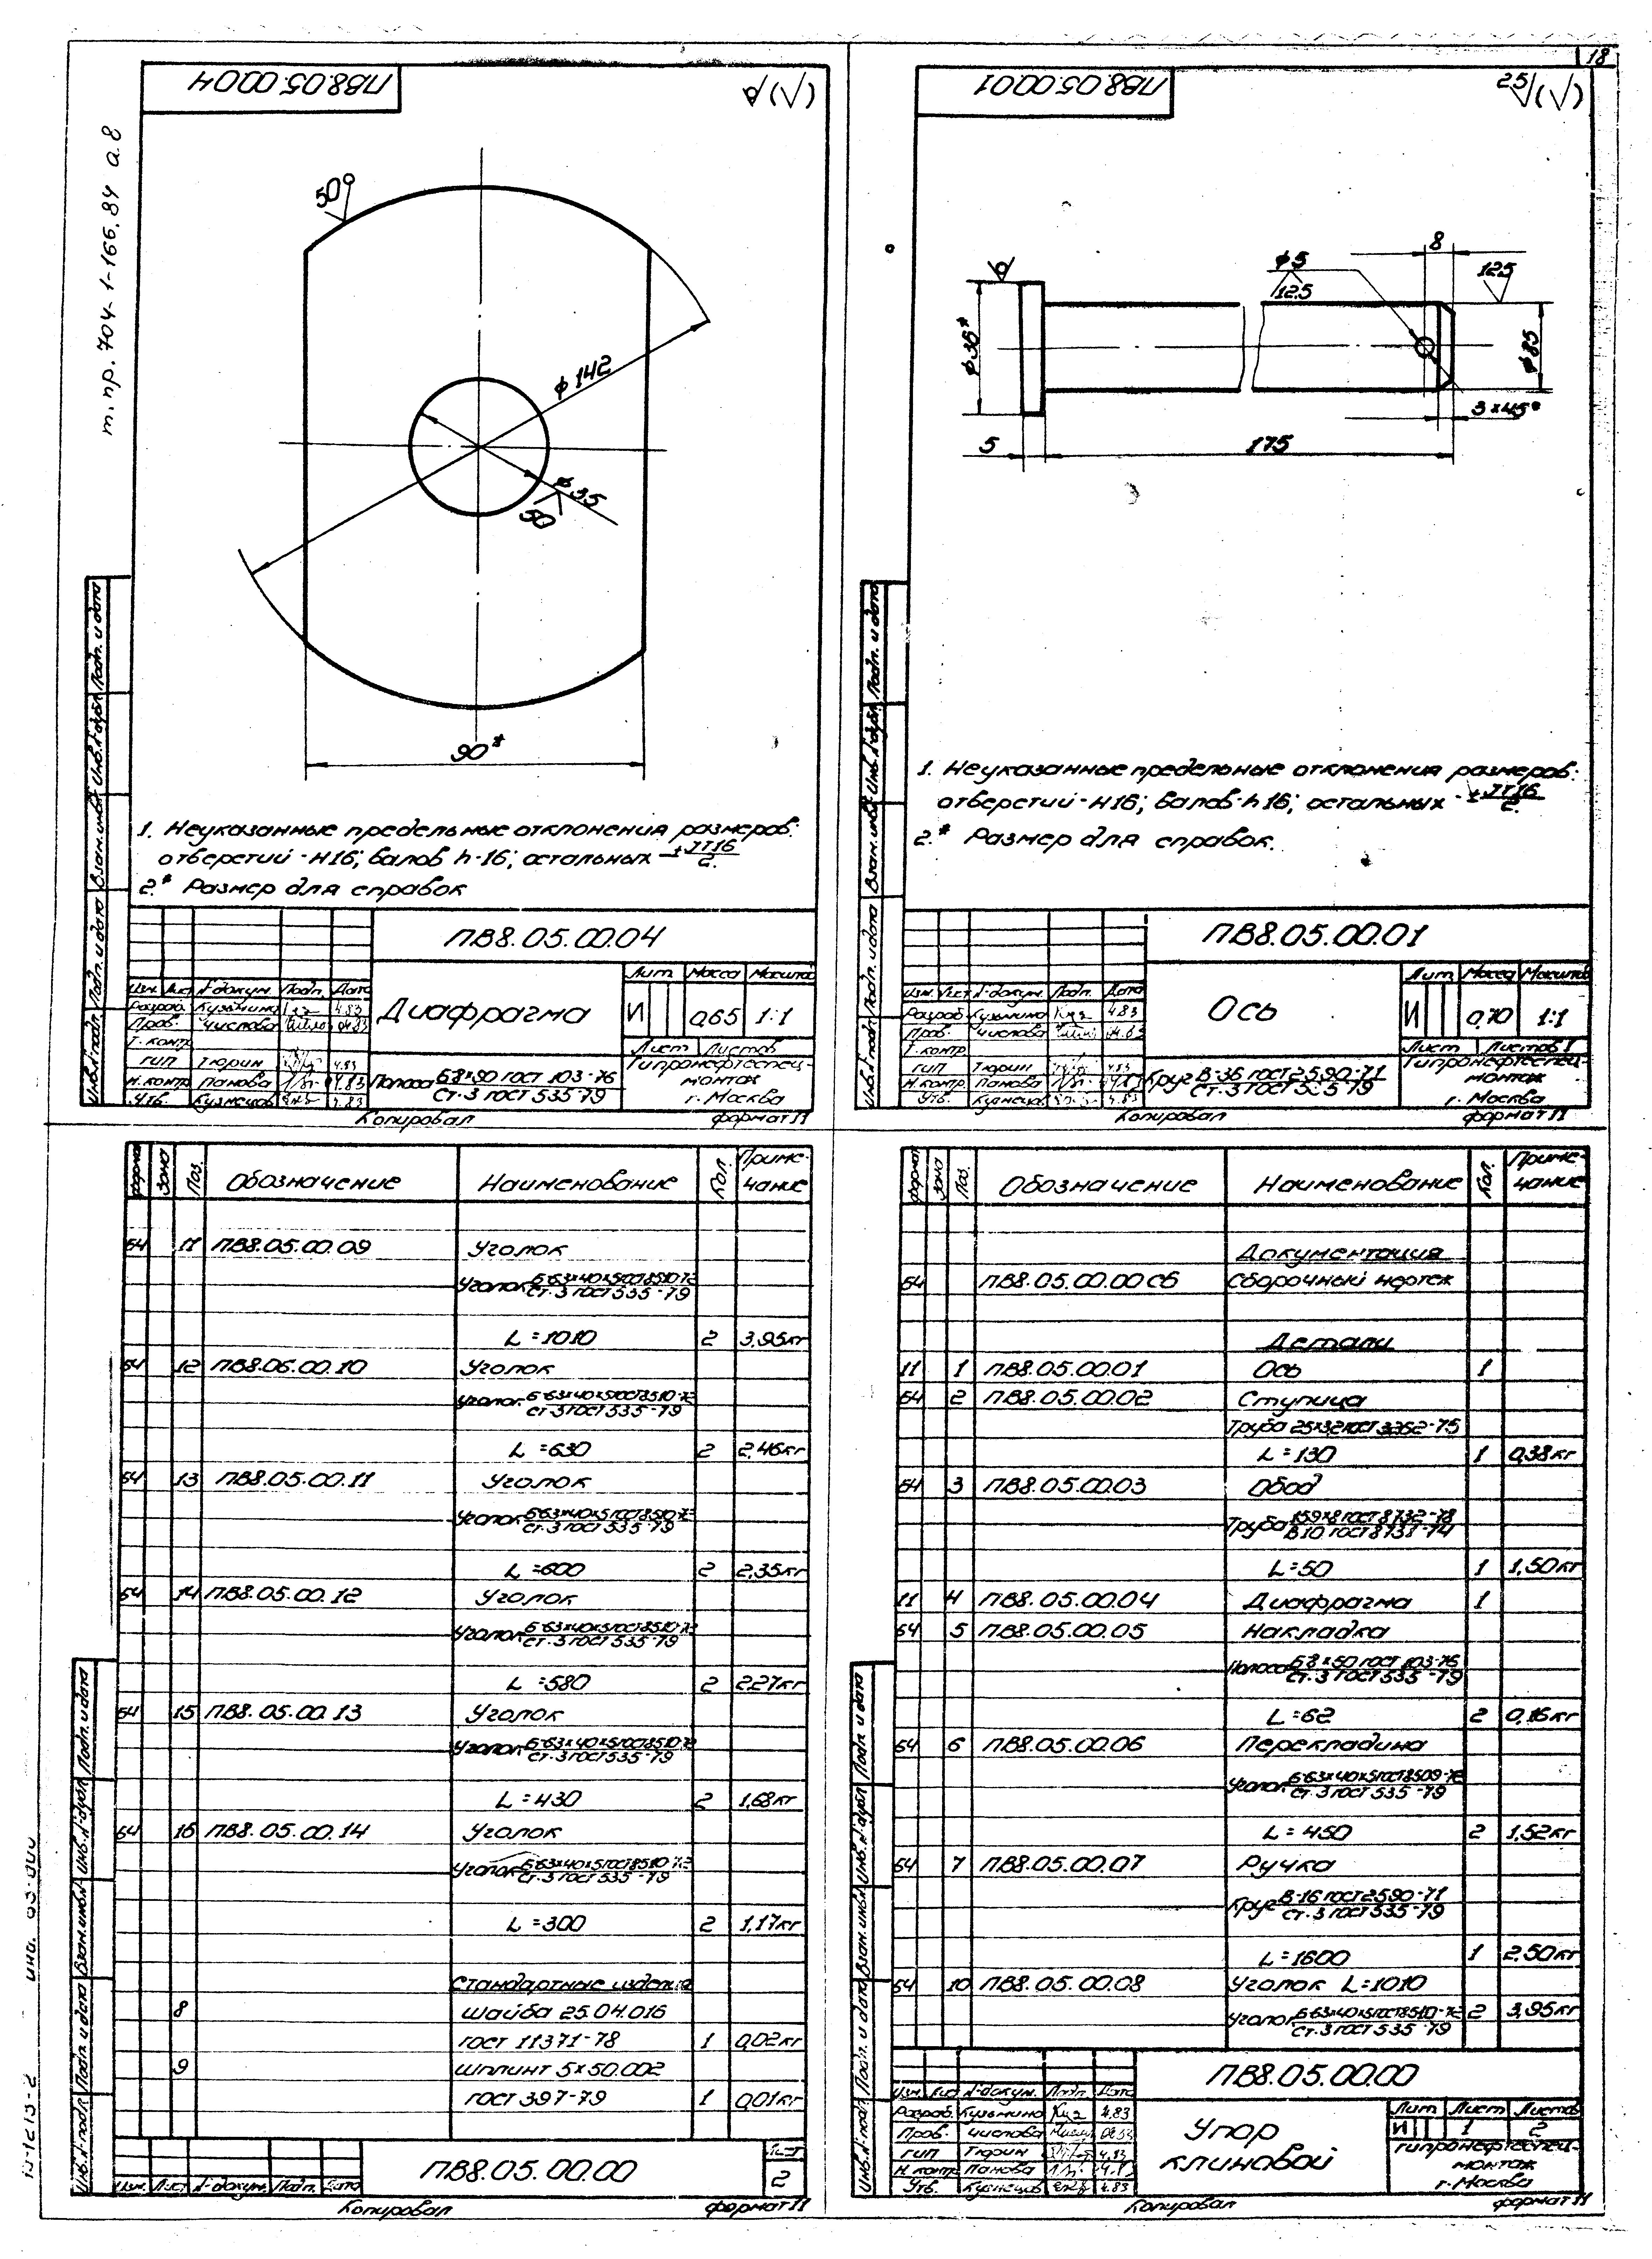 18
т.пр. 704-1-166.84 а.8
ПВ8.05.00.04
(√)
50
ϕ142
ϕ35
50
90*
1. Неуказанные предельные отклонения размеров:
отверстий -Н16; валов h-16; остальных ± IT16/2.
2.* Размер для справок
ПВ8.05.00.04
Лит. Масса Масштаб
Изм. Лист № докум. Подп. Дата
Диафрагма
И 0,65 1:1
Разраб. Кузьмина 4.83
Пров. Числова 04.83
Т. контр.
Лист Листов
ГИП Тюрин 4.83
Н. контр. Панова 4.83
Утв. Кузнецов 4.83
Полоса Б8×90 ГОСТ 103-76
Ст.3 ГОСТ 535-79
Гипронефтеспец-
монтаж
г. Москва
Копировал
формат 11
Инв.№ подл. Подп. и дата Взам.инв.№ Инв.№ дубл. Подп. и дата
ПВ8.05.00.01
25 (√)
ϕ36*
ϕ5
12.5
8
12.5
ϕ85
3×45°
5
175
1. Неуказанные предельные отклонения размеров:
отверстий -Н16; валов-h16; остальных - ± IT16/2.
2.* Размер для справок.
ПВ8.05.00.01
Лит. Масса Масштаб
Изм. Лист № докум. Подп. Дата
Ось
И 0,70 1:1
Разраб. Кузьмина 4.83
Пров. Числова
Т. контр.
Лист Листов 1
ГИП Тюрин 4.83
Н. контр. Панова 4.83
Утв. Кузнецов 4.83
Круг В-36 ГОСТ 2590-71
Ст.3 ГОСТ 535-79
Гипронефтеспец-
монтаж
г. Москва
Копировал
формат 11
Инв.№ подл. Подп. и дата Взам.инв.№ Инв.№ дубл. Подп. и дата
Формат Зона Поз. Обозначение Наименование Кол. Приме-
чание
БЧ 11 ПВ8.05.00.09 Уголок
Уголок Б-63×40×5 ГОСТ 8510-72
Ст.3 ГОСТ 535-79
L=1010 2 3,95кг
БЧ 12 ПВ8.06.00.10 Уголок
Уголок Б-63×40×5 ГОСТ 8510-72
Ст.3 ГОСТ 535-79
L=630 2 2,46кг
БЧ 13 ПВ8.05.00.11 Уголок
Уголок Б-63×40×5 ГОСТ 8510-72
Ст.3 ГОСТ 535-79
L=600 2 2,35кг
БЧ 14 ПВ8.05.00.12 Уголок
Уголок Б-63×40×5 ГОСТ 8510-72
Ст.3 ГОСТ 535-79
L=580 2 2,27кг
БЧ 15 ПВ8.05.00.13 Уголок
Уголок Б-63×40×5 ГОСТ 8510-72
Ст.3 ГОСТ 535-79
L=430 2 1,68кг
БЧ 16 ПВ8.05.00.14 Уголок
Уголок Б-63×40×5 ГОСТ 8510-72
Ст.3 ГОСТ 535-79
L=300 2 1,17кг
Стандартные изделия
8 Шайба 25.04.016
ГОСТ 11371-78 1 0,02кг
9 Шплинт 5×50.002
ГОСТ 397-79 1 0,01кг
ПВ8.05.00.00
Лист
2
Изм. Лист № докум. Подп. Дата
Копировал
формат 11
Инв.№ подл. Подп. и дата Взам.инв.№ Инв.№ дубл. Подп. и дата
Формат Зона Поз. Обозначение Наименование Кол. Приме-
чание
Документация
БЧ ПВ8.05.00.00 СБ Сборочный чертеж
Детали
11 1 ПВ8.05.00.01 Ось 1
БЧ 2 ПВ8.05.00.02 Ступица
Труба 25×3,2 ГОСТ 3262-75
L=130 1 0,38кг
БЧ 3 ПВ8.05.00.03 Обод
Труба 159×8 ГОСТ 8732-78
В10 ГОСТ 8731-74
L=50 1 1,50кг
11 4 ПВ8.05.00.04 Диафрагма 1
БЧ 5 ПВ8.05.00.05 Накладка
Полоса Б8×50 ГОСТ 103-76
Ст.3 ГОСТ 535-79
L=62 2 0,16кг
БЧ 6 ПВ8.05.00.06 Перекладина
Уголок Б-63×40×5 ГОСТ 8509-72
Ст.3 ГОСТ 535-79
L=450 2 1,52кг
БЧ 7 ПВ8.05.00.07 Ручка
Круг В-16 ГОСТ 2590-71
Ст.3 ГОСТ 535-79
L=1600 1 2,50кг
БЧ 10 ПВ8.05.00.08 Уголок L=1010
Уголок Б-63×40×5 ГОСТ 8510-72 2 3,95кг
Ст.3 ГОСТ 535-79
ПВ8.05.00.00
Изм. Лист № докум. Подп. Дата
Разраб. Кузьмина 4.83
Пров. Числова 04.83
ГИП Тюрин 4.83
Н. контр. Панова 4.83
Утв. Кузнецов 4.83
Упор
клиновой
Лит. Лист Листов
И 1 2
Гипронефтеспец-
монтаж
г. Москва
Копировал
формат 11
Инв.№ подл. Подп. и дата Взам.инв.№ Инв.№ дубл. Подп. и дата